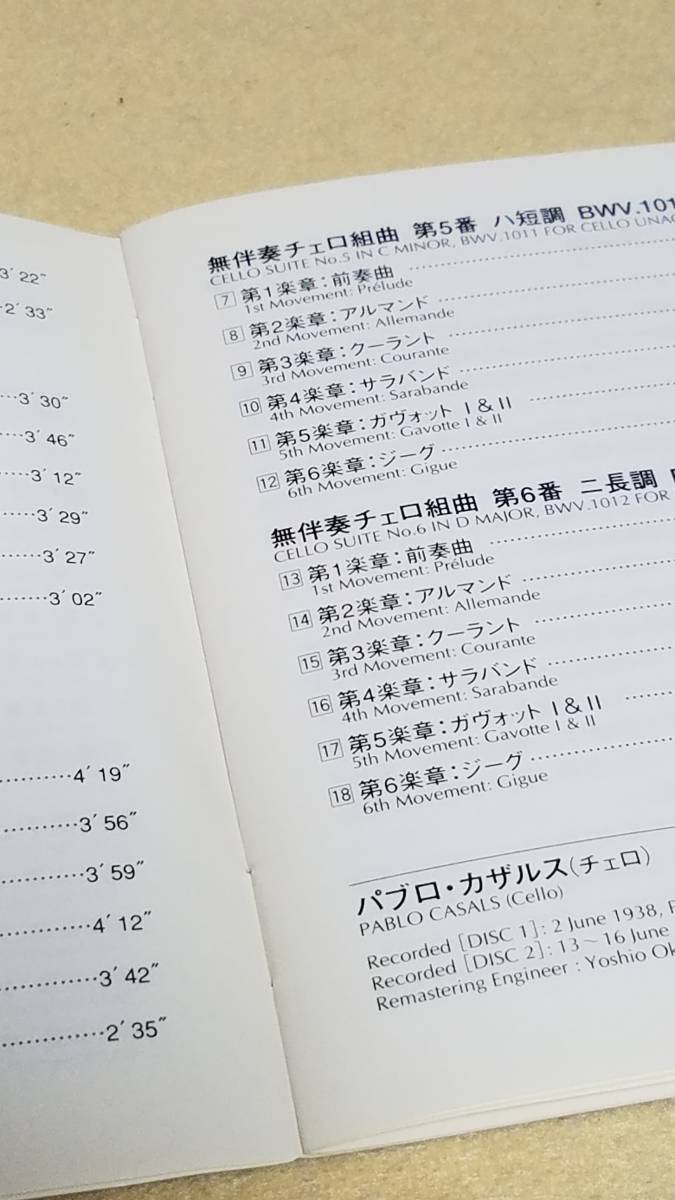 3′22″
2′33″
3′30″
3′46″
3′12″
3′29″
3′27″
3′02″
4′19″
3′56″
3′59″
4′12″
3′42″
2′35″
無伴奏チェロ組曲 第5番 ハ短調 BWV.101
CELLO SUITE No.5 IN C MINOR, BWV.1011 FOR CELLO UNAC
7 第1楽章：前奏曲
1st Movement: Prélude
8 第2楽章：アルマンド
2nd Movement: Allemande
9 第3楽章：クーラント
3rd Movement: Courante
10 第4楽章：サラバンド
4th Movement: Sarabande
11 第5楽章：ガヴォット I & II
5th Movement: Gavotte I & II
12 第6楽章：ジーグ
6th Movement: Gigue
無伴奏チェロ組曲 第6番 ニ長調
CELLO SUITE No.6 IN D MAJOR, BWV.1012 FOR
13 第1楽章：前奏曲
1st Movement: Prélude
14 第2楽章：アルマンド
2nd Movement: Allemande
15 第3楽章：クーラント
3rd Movement: Courante
16 第4楽章：サラバンド
4th Movement: Sarabande
17 第5楽章：ガヴォット I & II
5th Movement: Gavotte I & II
18 第6楽章：ジーグ
6th Movement: Gigue
パブロ・カザルス(チェロ)
PABLO CASALS (Cello)
Recorded [DISC 1]: 2 June 1938,
Recorded [DISC 2]: 13～16 June
Remastering Engineer : Yoshio Ok